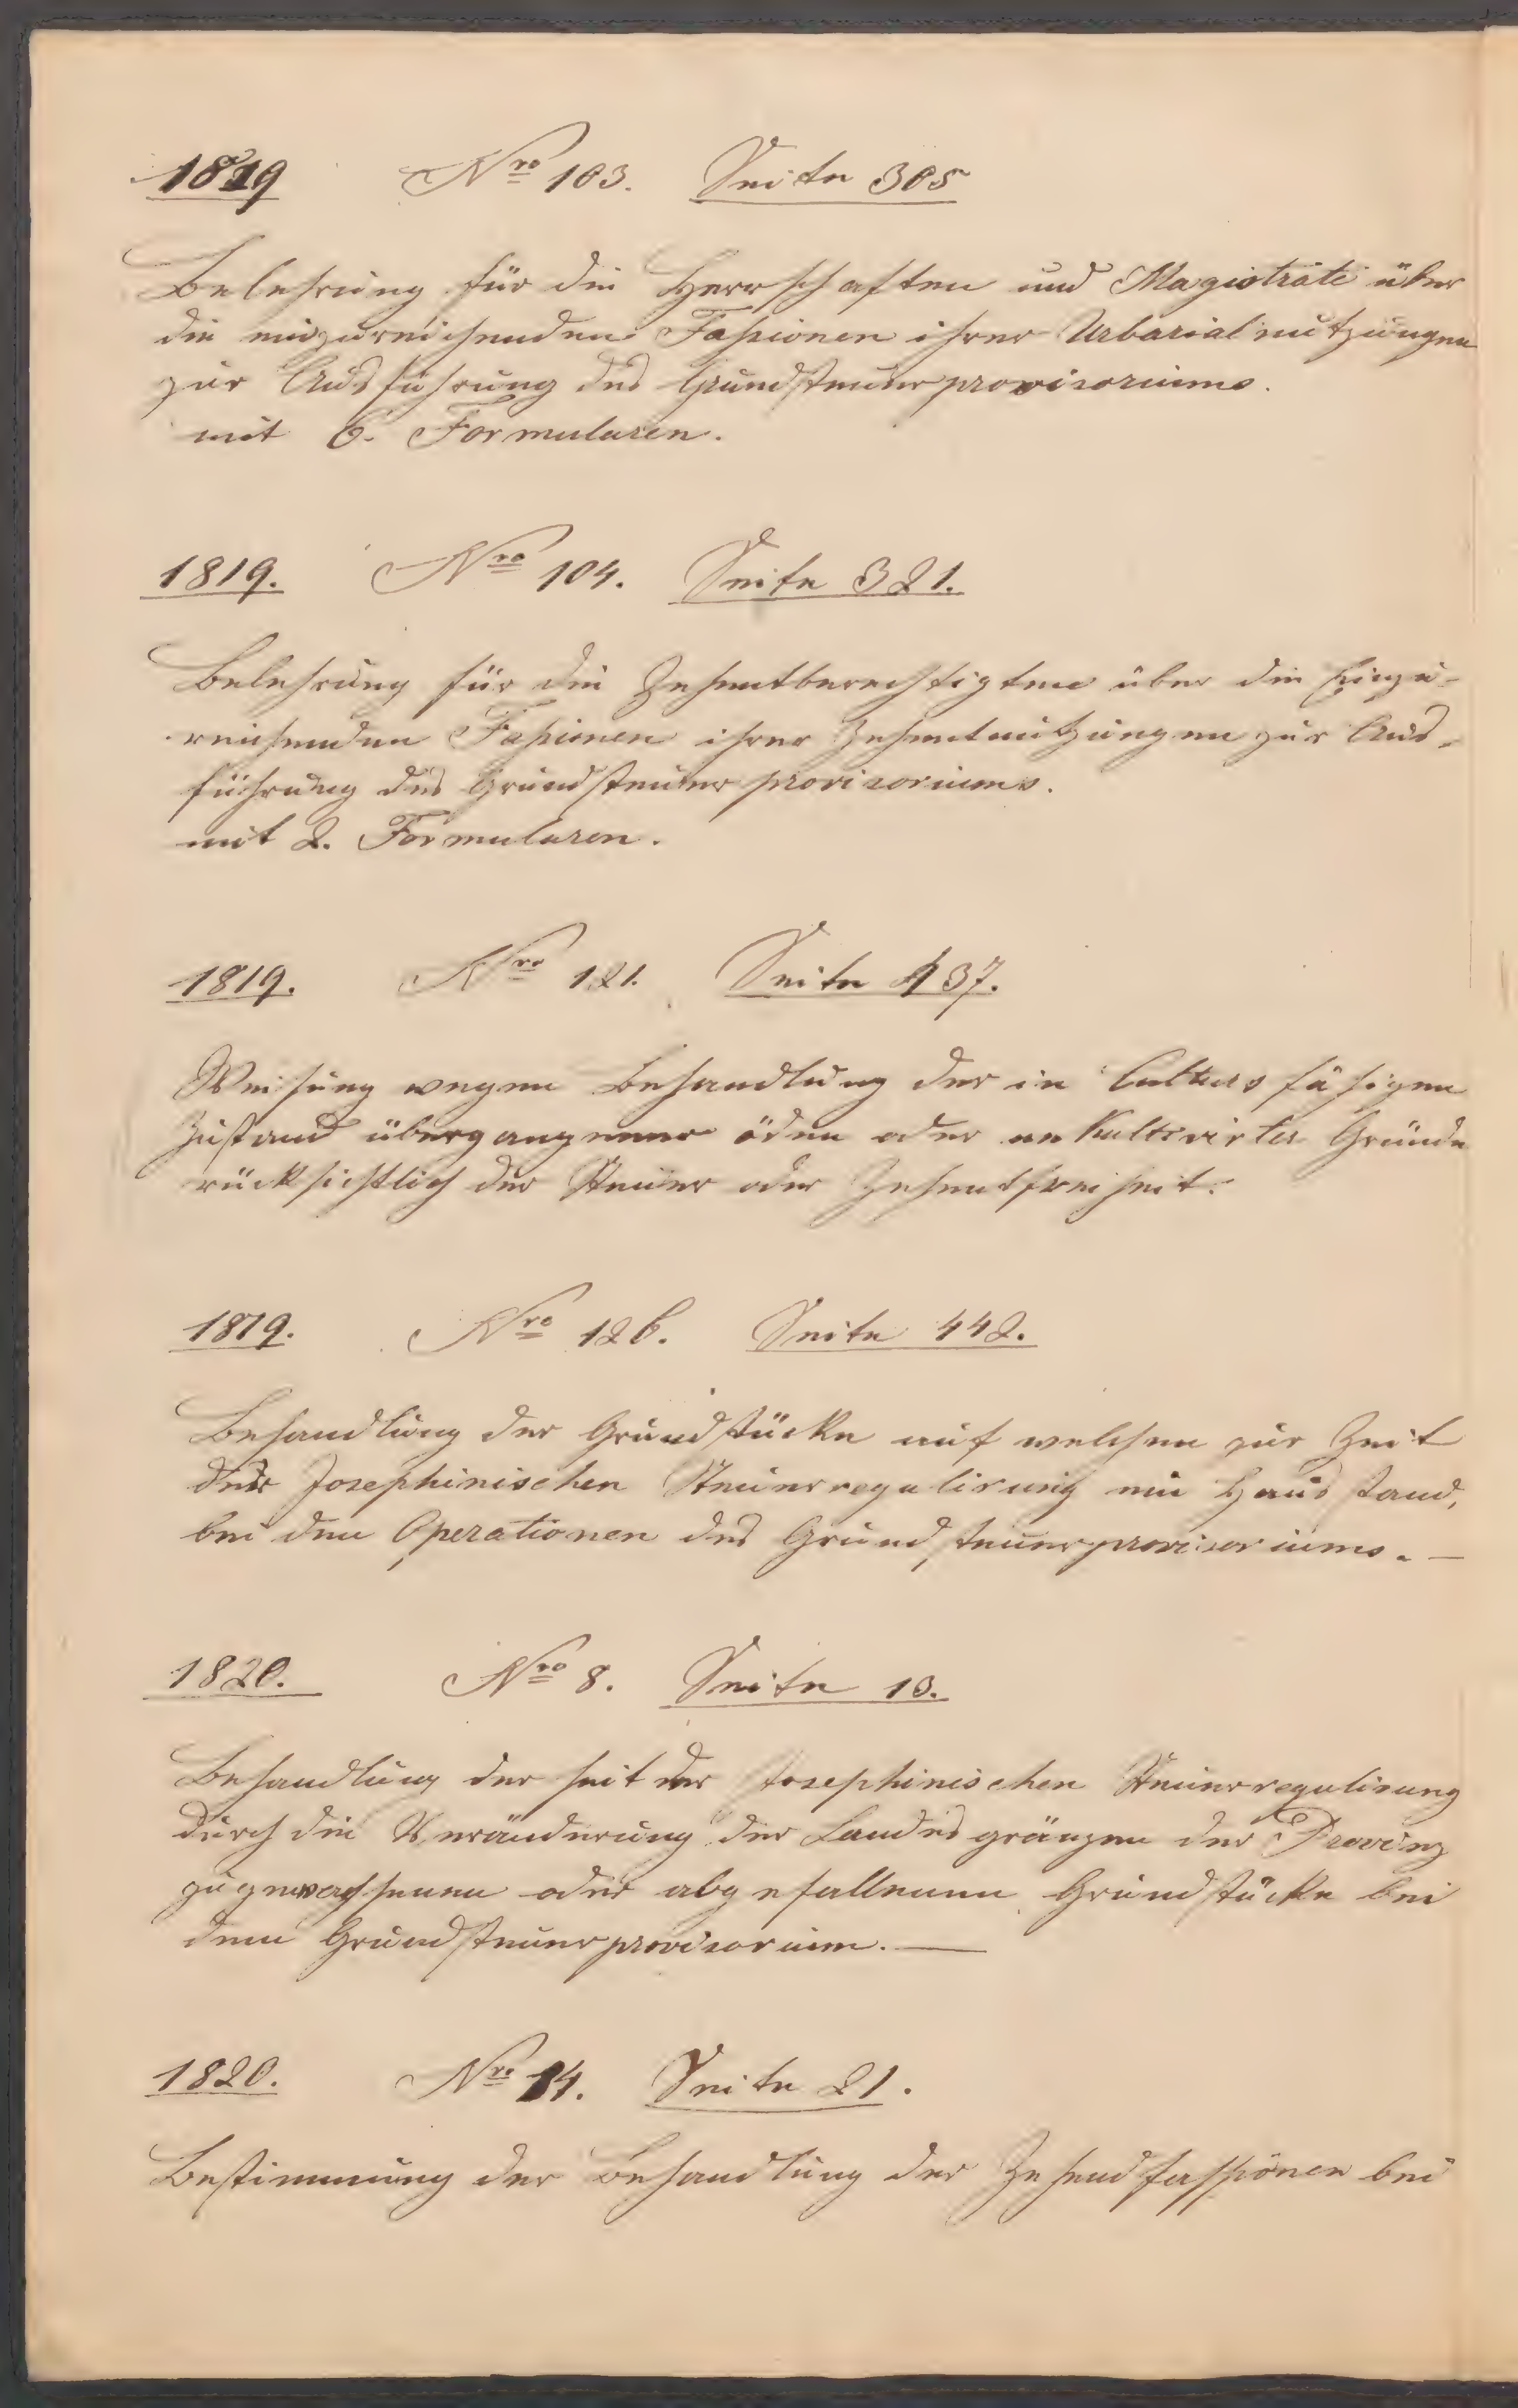 1819 Nro 103. Seite 305
Belehrung für die Herrschaften und Magistrate über
die einzureichenden Faßionen ihrer Urbarialnutzungen
zur Ausführung des Grundsteuerprovisoriums.
mit 6. Formularen.
1819. Nro 104. Seite 321.
Belehrung für die Zehentberechtigten über die Einzu-
reichenden Faßionen ihrer Zehentnutzungen zur Aus-
führung des Grundsteuerprovisoriums.
mit 2. Formularen.
1819. Nro 121. Seite 437.
Weisung wegen Behandlung der in Culturs fähigen
Zustand übergangener öden oder unkultivirter Gründe
rücksichtlich der Steuer oder Zehentfreiheit.
1819. Nro 126. Seite 442.
Behandlung der Grundstücke auf welchen zur Zeit
der Josephinischen Steuerregulirung ein Haus stand,
bei den Operationen des Grundsteuerprovisoriums. —
1820. Nro 8. Seite 13.
Behandlung der seit der Josephinischen Steuerregulirung
durch die Veränderung der Landesgränzen der Provinz
zugewachsenen oder abgefallenen Grundstücke bei
dem Grundsteuerprovisorium. —
1820. Nro 14. Seite 21.
Bestimmung der Behandlung der Zehendfassionen bei